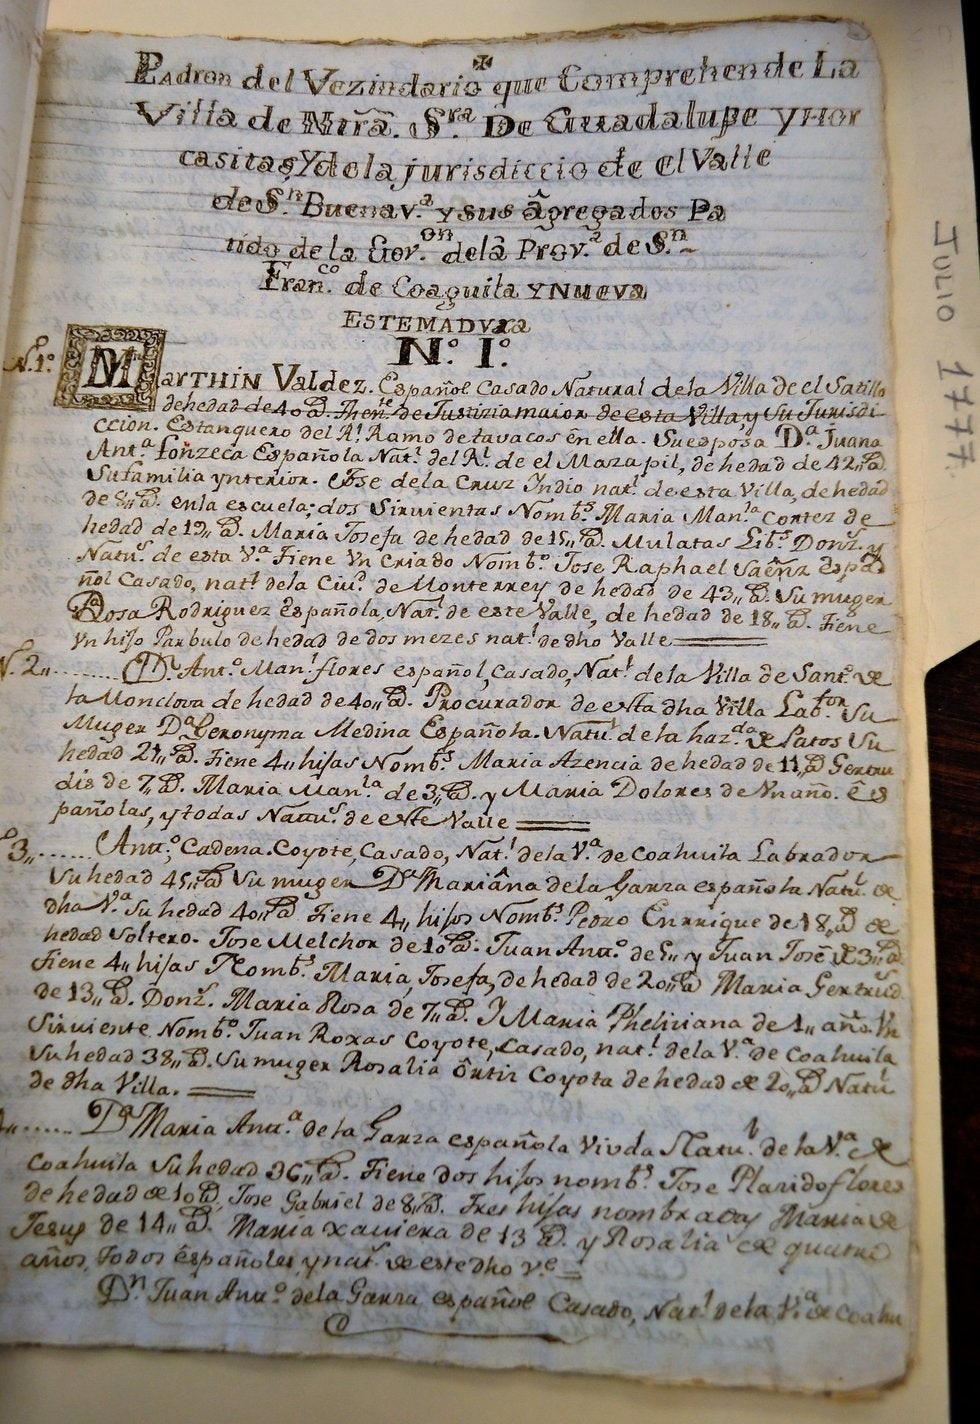 ✠
Padron del Vezindario que Comprehende La
Villa de Ntrã. Sra De Guadalupe y Hor
casitas, Y de la jurisdiccio de el Valle
de Sn. Buenav.a y sus ãgregados Pa
tido de la Gov.on dela Prov.a de Sn.
Fran.co de Coaguila Y NUeva
ESTEMADVra
N.o I.o
N.1.o Mn arTHIN Valdez. Español Casado Natural de la Villa de el Satillo
de hedad de 40 a.s Then.te de Justizia maior de esta Villa, y Su Jurisdi-
ccion. Estanquero del R.l Ramo de tavacos en ella. Su esposa D.a Juana
Ant.a fonzeca Española Nat.l del R.l de el Mazapil, de hedad de 42,, a.s
Su familia ynterior. Jose de la Cruz Yndio nat.l de esta Villa, de hedad
de 8,, a.s en la escuela; dos Sirvientas Nomb.s Maria Man.la Cortez de
hedad de 19,, a.s Maria Josefa de hedad de 15,, a.s Mulatas Lib.s Donz.s y
Natu.s de esta V.a Tiene Vn Criado Nomb.o Jose Raphael Saênz Espa
ñol Casado, nat.l de la Ciu.d de Monterrey de hedad de 43,, a.s Su muger
Rosa Rodriguez Española, Nat.l de este Valle, de hedad de 18,, a.s Tiene
Yn hijo Parbulo de hedad de dos mezes nat.l de dho Valle
N. 2,, D.n Ant.o Man.l flores español, Casado, Nat.l de la Villa de Sant.o de
la Monclova de hedad de 40,, a.s Procurador de esta dha Villa Lab.or Su
Muger D.a Geronyma Medina Española. Natu.l de la haz.da de Patos Su
hedad 27,, a.s Tiene 4,, hijas Nomb.s Maria Azencia de hedad de 11,, a.s Gertru
dis de 7,, a.s Maria Man.la de 3,, a.s y Maria Dolores de Vn año. Es
pañolas, y todas Natu.s de este Valle
3,, Antt.o Cadena. Coyote, Casado, Nat.l de la V.a de Coahuila Labrador
Su hedad 45,, a.s Su muger D.a Mariâna de la Garza española Natu.l de
dha V.a Su hedad 40,, a.s Tiene 4,, hijos Nomb.s Pedro Enrrique de 18,, a.s de
hedad Soltero. Jose Melchor de 10 a.s Juan Antt.o de 5,, y Juan Josê de 3,, a.s
Tiene 4,, hijas Nomb.s Maria, Josefa, de hedad de 20,, a.s Maria Gertrud.s
de 13,, a.s Donz.s Maria Rosa de 7,, a.s Y Maria Pheliciana de 1,, año. Vn
Sirviente Nomb.o Juan Roxas Coyote, Casado, nat.l de la V.a de Coahuila
Su hedad 38,, a.s Su muger Rosalia Ôrtiz Coyota de hedad de 20,, a.s Natu.l
de dha Villa.
4,, D.a Maria Antt.a de la Garza española Viuda Natu.l de la V.a de
Coahuila Su hedad 36,, a.s Tiene dos hijos nomb.s Jose Plasido flores
de hedad de 10 a.s, Jose Gabriel de 8,, a.s Tres hijas nombradas Maria de
Jesus de 14,, a.s Maria xaviera de 13 a.s y Rosalia de quatro
años, Todos españoles, y nat.s de este dho V.e
D.n Juan Antt.o de la Garza español Casado, Nat.l de la V.a de Coahu
JULIO 1777.